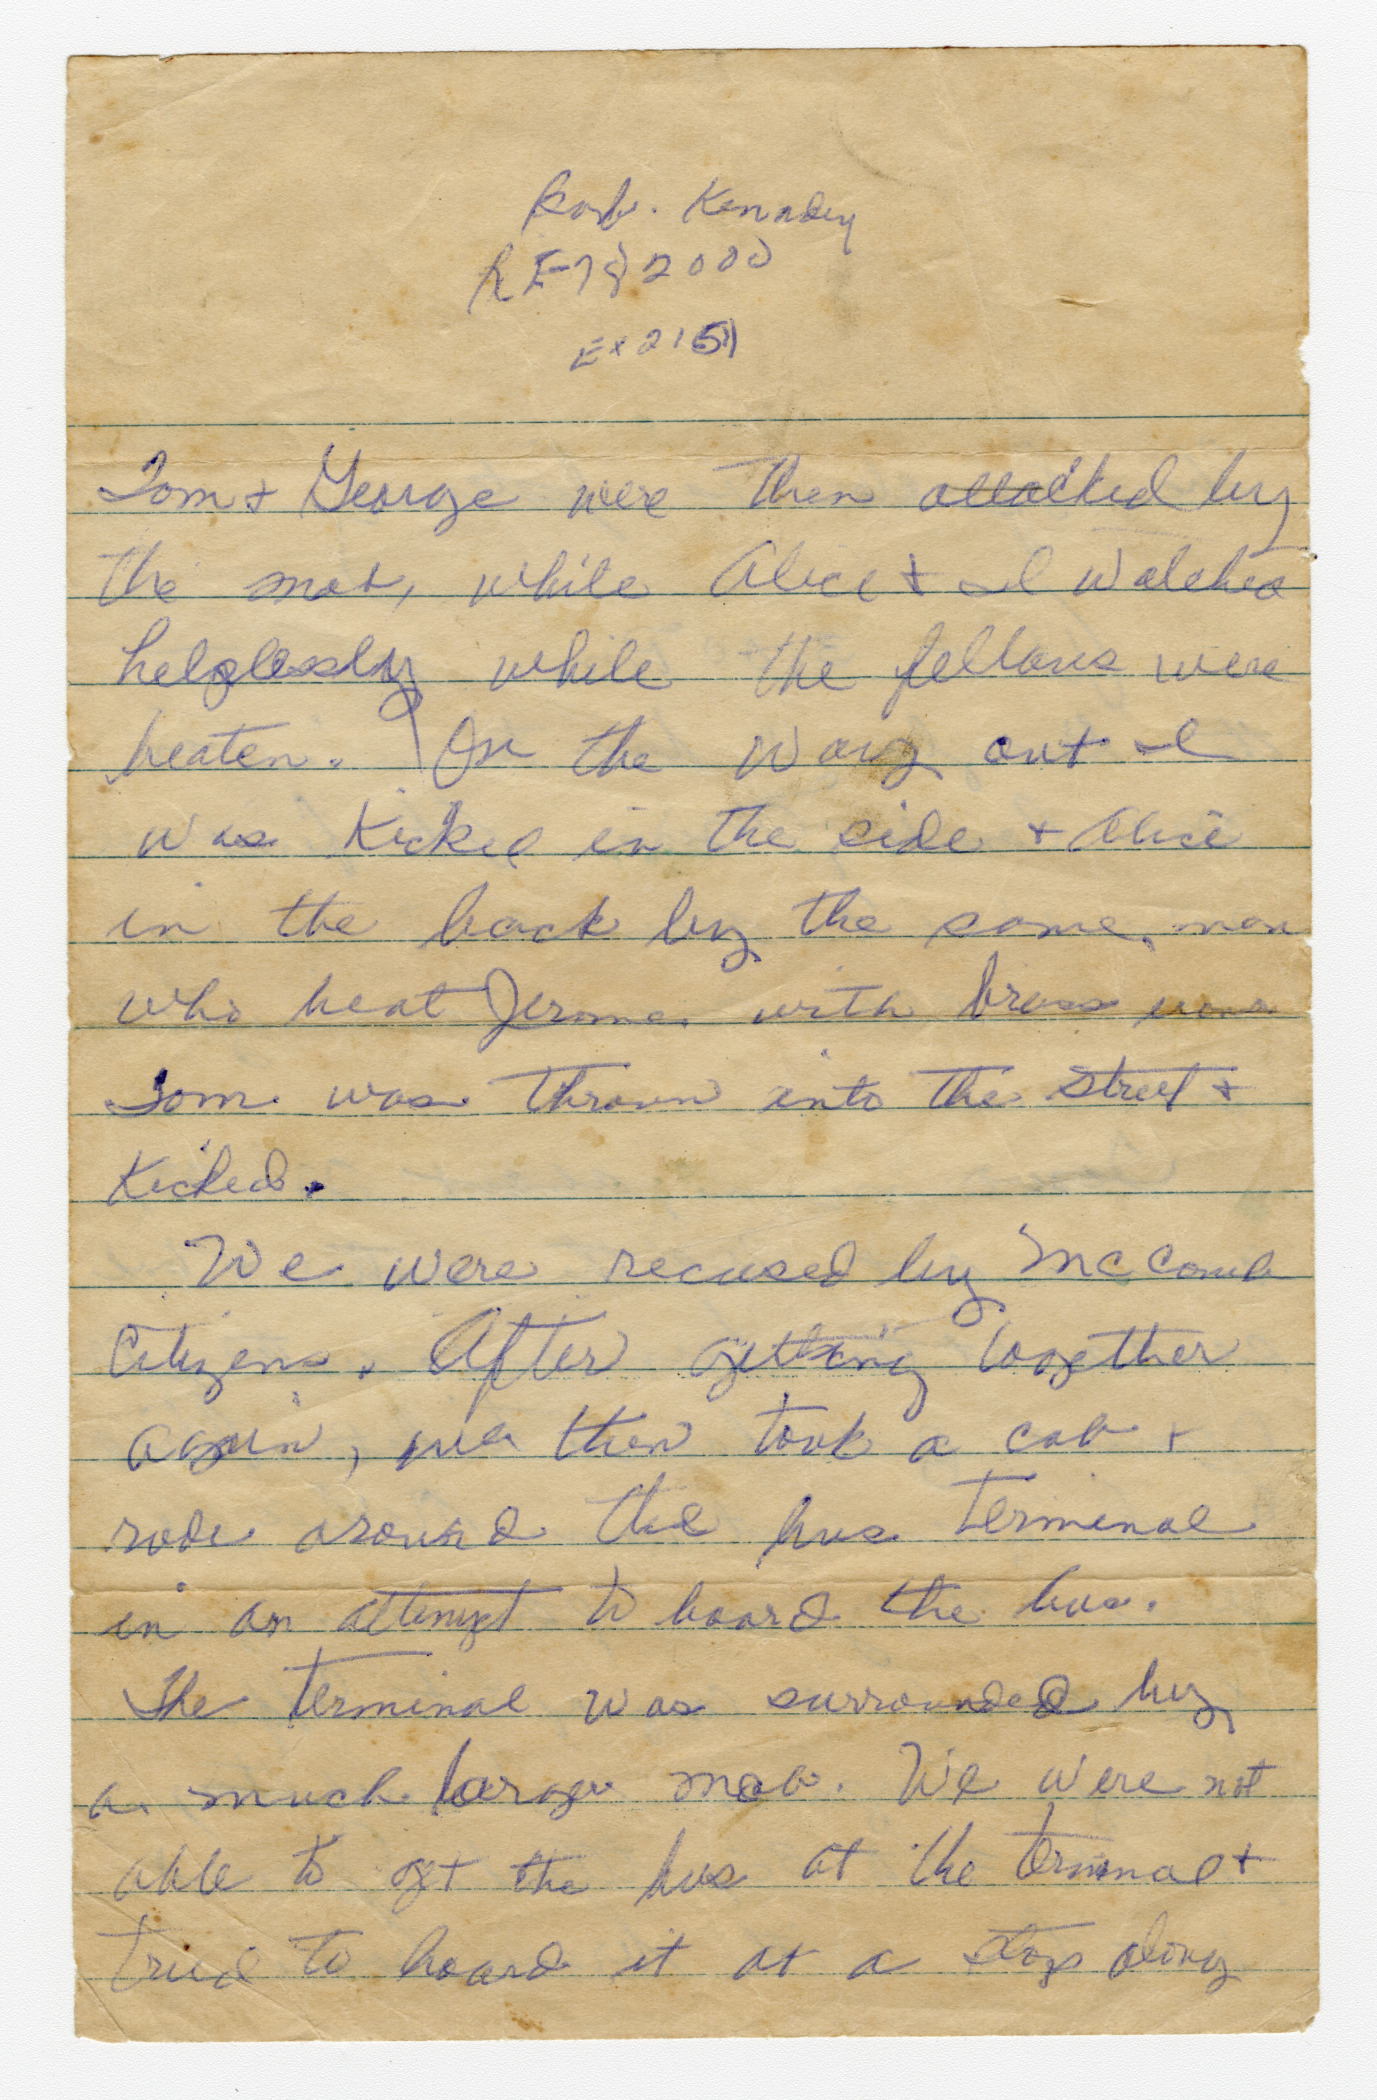 Rob. Kenadey
RE 782000
Ex 2151
Tom + George were then attacked by
the mob, while Alice + I watched
helplessly while the fellows were
beaten. On the way out I
was kicked in the side + Alice
in the back by the same man
who beat Jerome with brass
Tom was thrown into the street +
kicked.
We were recused by McComb
Citizens. After getting together
again, we then took a cab +
rode around the bus terminal
in an attempt to board the bus.
The terminal was surrounded by
a much large mob. We were not
able to get the bus at the terminal +
tried to board it at a stop along